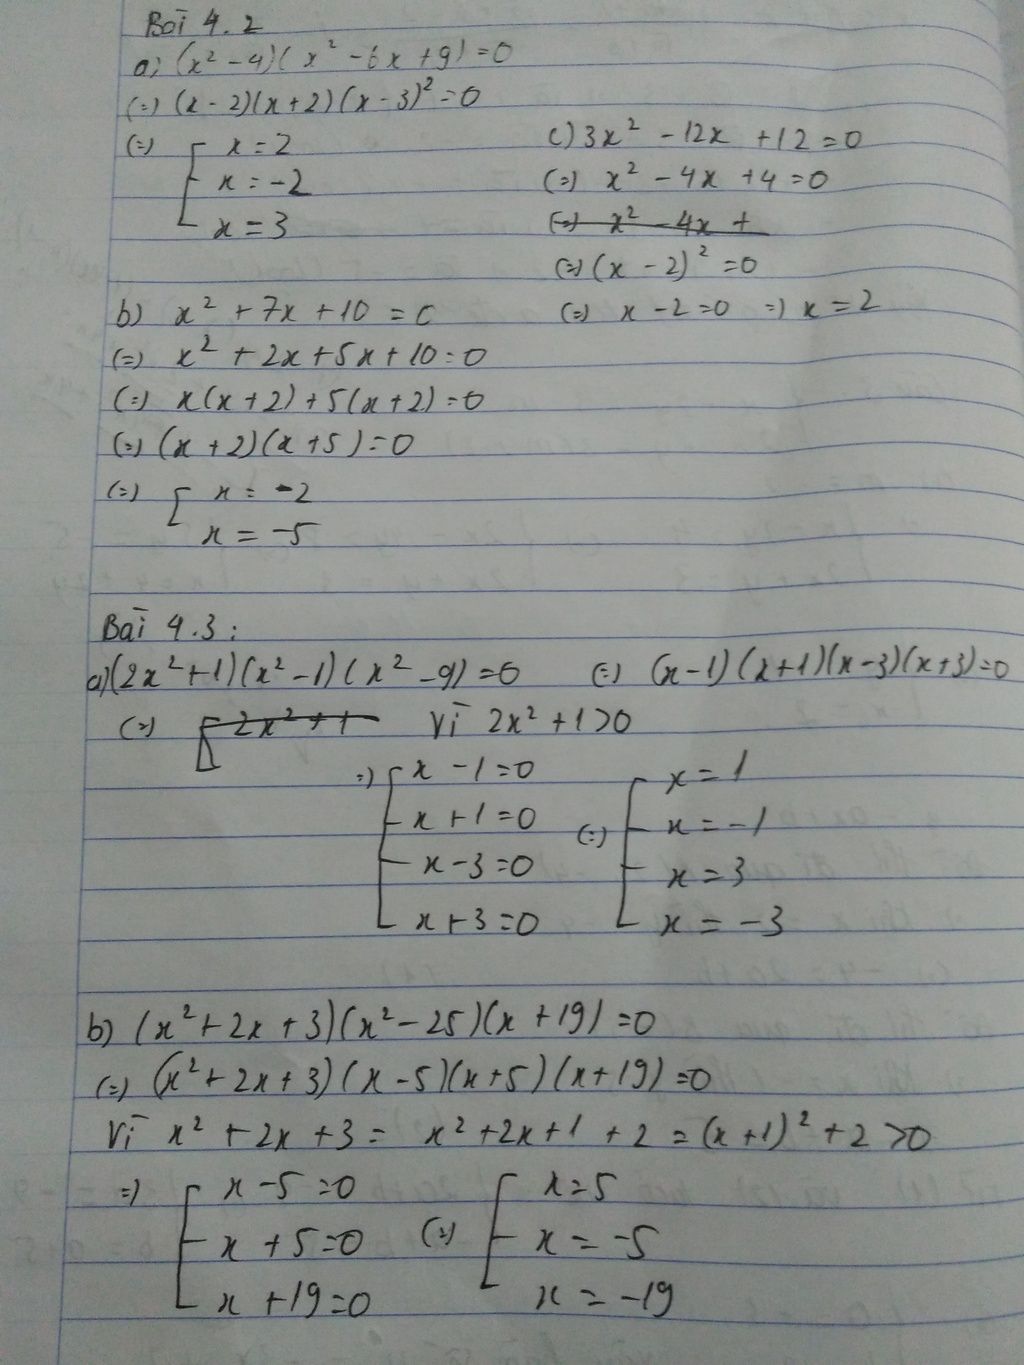 Bài 4.2
a) (x² - 4)(x² - 6x + 9) = 0
(=) (x - 2)(x + 2)(x - 3)² = 0
(=) [ x = 2
x = -2
x = 3
c) 3x² - 12x + 12 = 0
(=) x² - 4x + 4 = 0
(=) x² - 4x +
(=) (x - 2)² = 0
(=) x - 2 = 0 =) x = 2
b) x² + 7x + 10 = 0
(=) x² + 2x + 5x + 10 = 0
(=) x(x + 2) + 5(x + 2) = 0
(=) (x + 2)(x + 5) = 0
(=) [ x = -2
x = -5
Bài 4.3:
a) (2x² + 1)(x² - 1)(x² - 9) = 0 (=) (x - 1)(x + 1)(x - 3)(x + 3) = 0
(=) [ 2x² + 1 Vì 2x² + 1 > 0
=) [ x - 1 = 0
x + 1 = 0
x - 3 = 0
x + 3 = 0
(=) [ x = 1
x = -1
x = 3
x = -3
b) (x² + 2x + 3)(x² - 25)(x + 19) = 0
(=) (x² + 2x + 3)(x - 5)(x + 5)(x + 19) = 0
Vì x² + 2x + 3 = x² + 2x + 1 + 2 = (x + 1)² + 2 > 0
=) [ x - 5 = 0
x + 5 = 0
x + 19 = 0
(=) [ x = 5
x = -5
x = -19